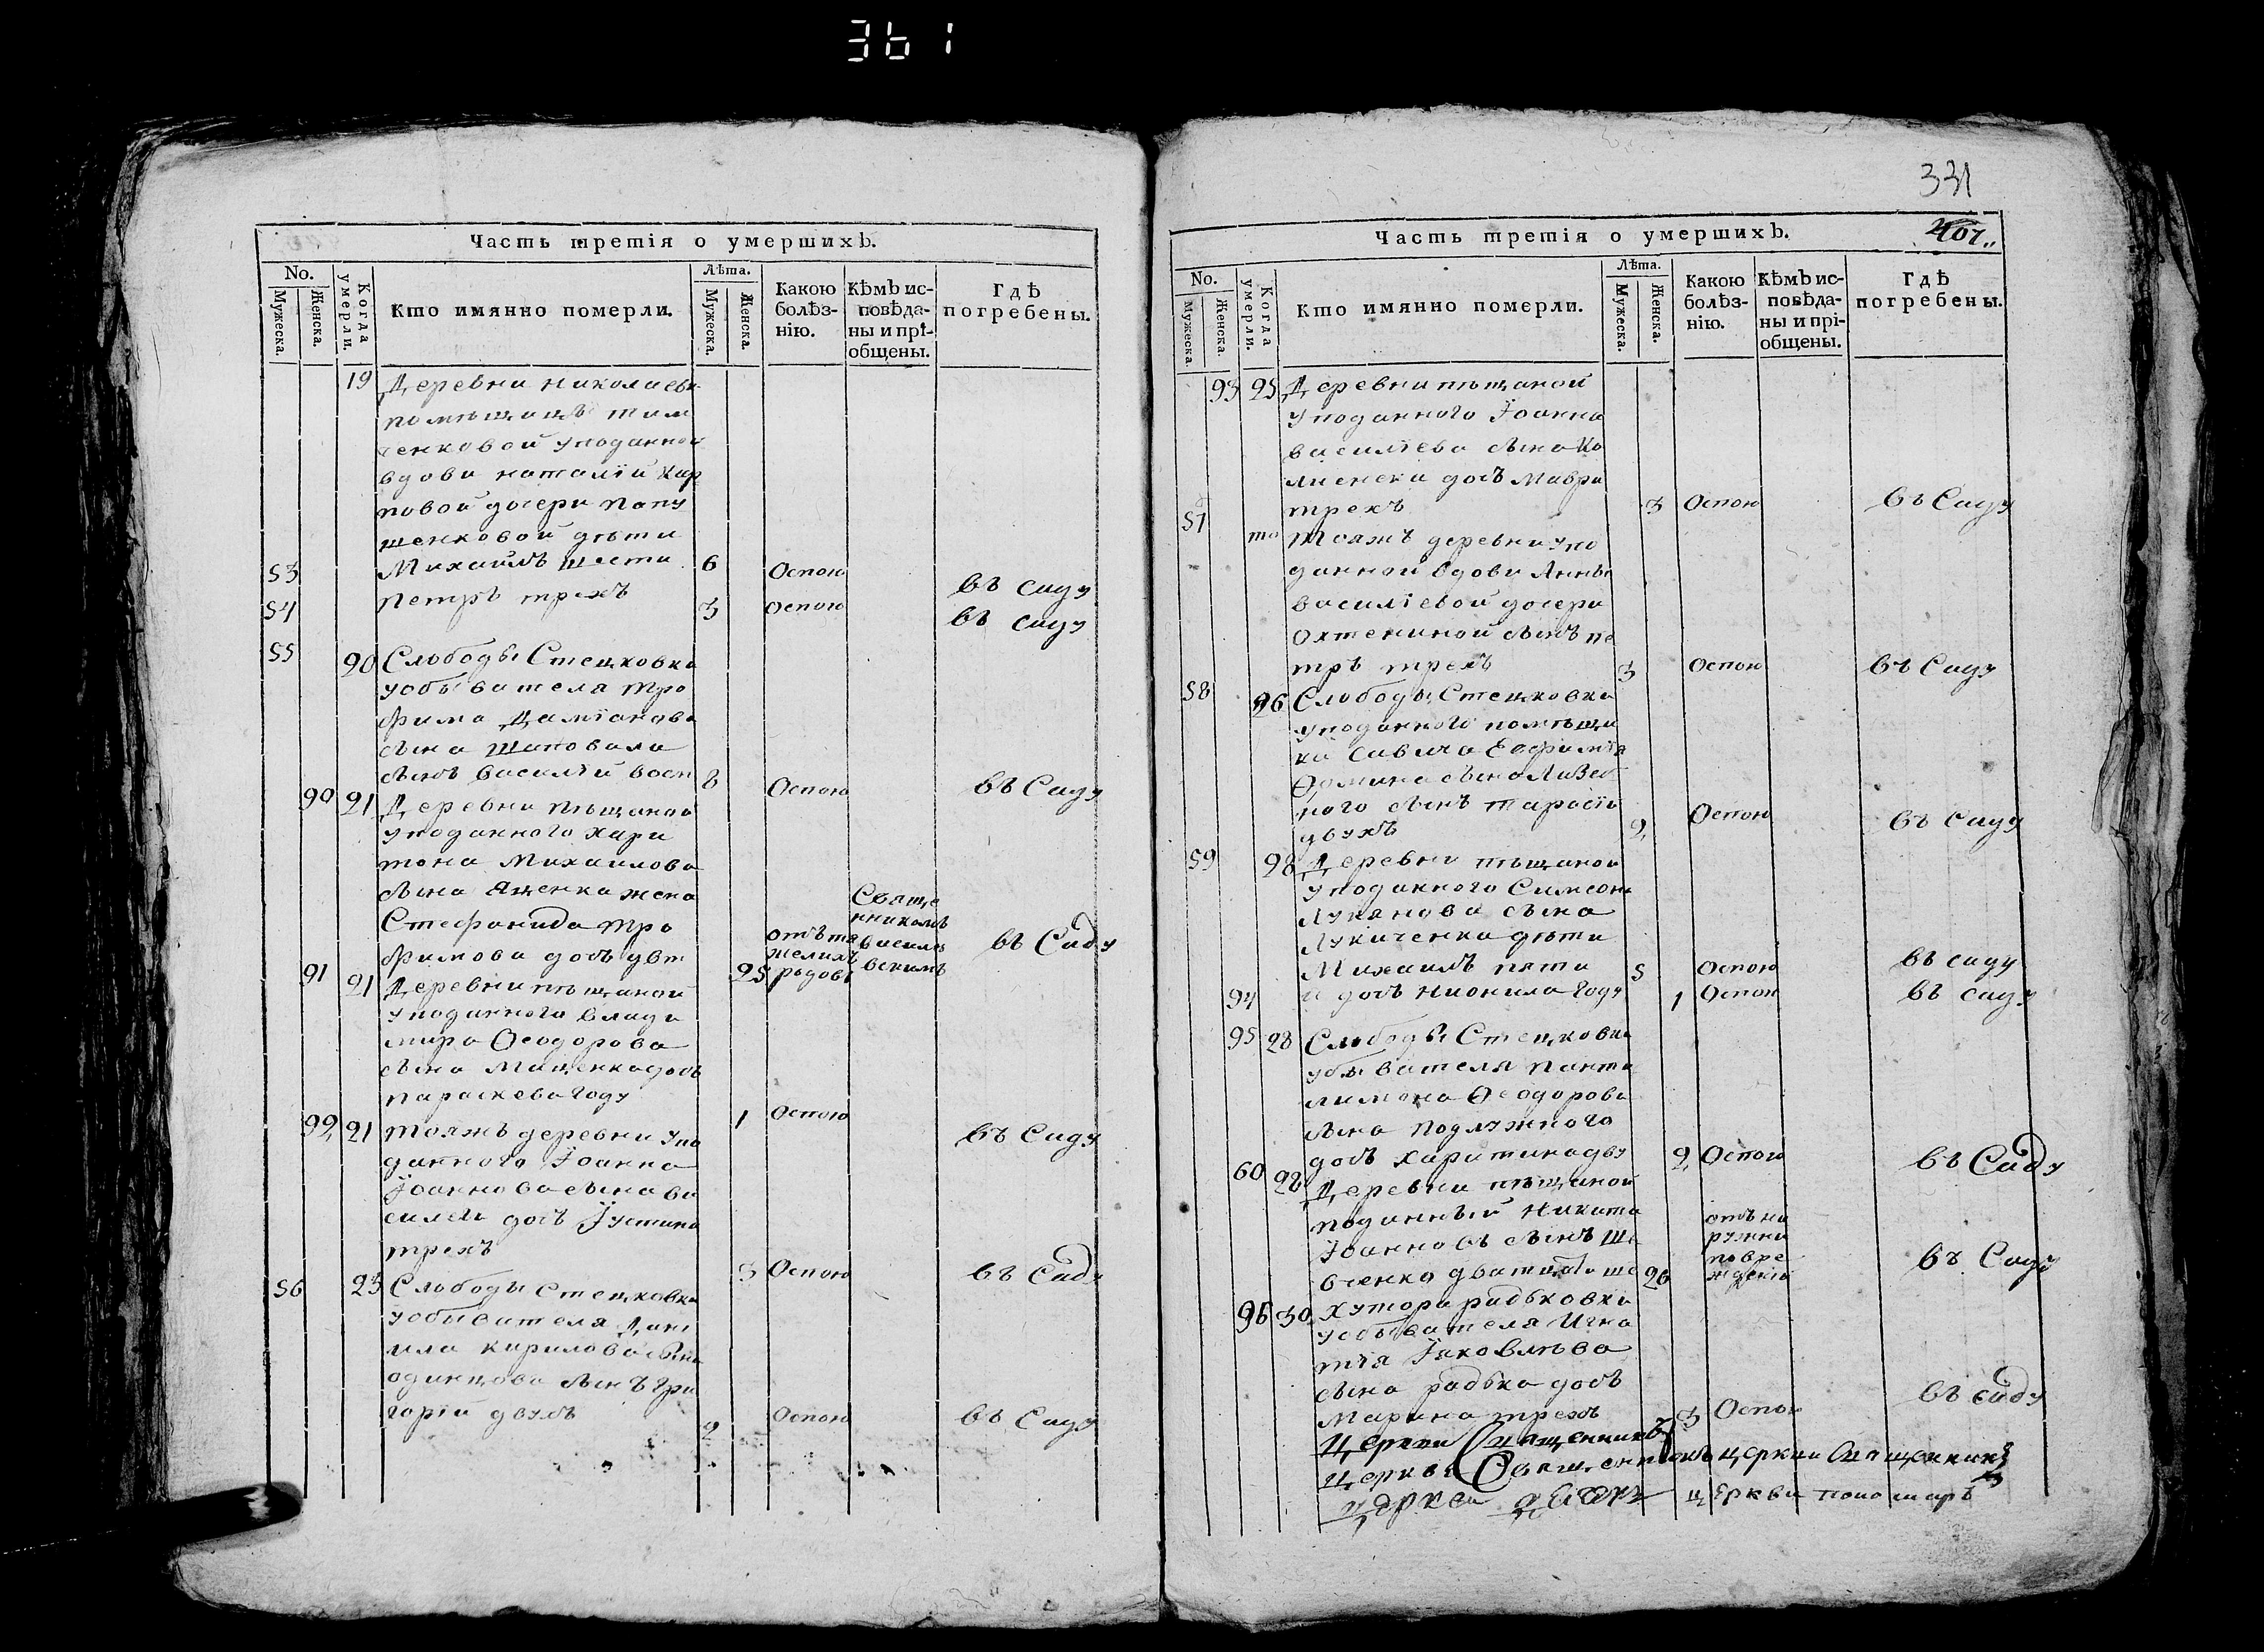 361
Часть третія о умершихъ.
No.
Мужеска.
Женска.
Когда умерли.
Кто имянно померли.
Лѣта.
Мужеска.
Женска.
Какою болѣз-
нію.
Кѣмъ ис-
повѣда-
ны и прі-
общены.
Гдѣ
погребены.
19 Деревни николаевк
помѣщицѣ тим
ченковой уподанной
вдови наталіи кар
повой дочери папу
шенковой дѣти
53 Михаилъ шести 6 Оспою въ саду
54 петръ трехъ 3 оспою въ саду
55 20 Слободы Стецковки
уобывателя тро
фима Даміанова
сына шаповала
сынъ василій восм 8 Оспою въ Саду
90 21 Деревни пѣщаной
уподанного хари
тона михаилова
сына Яценка жена
Стефанида тро
фимова дочь двт
25 отъ тя
желихъ
родовъ
Свяще
нникомъ
василе
вскимъ
въ Саду
91 21 Деревни пѣщаной
уподанного влади
мира Ѳеодорова
сына Маценка дочь
параскева году 1 Оспою въ Саду
92 21 тояжъ деревни упо
данного Іоанна
Іоаннова сына ва
силец дочь Іустина
трехъ 3 Оспою въ Саду
56 23 Слободы Стецковки
уобывателя Дані
ила кирилова сына
одинцова сынъ гри
горій двухъ 2 Оспою въ Саду
331
407
Часть третія о умершихъ.
No.
Мужеска.
Женска.
Когда умерли.
Кто имянно померли.
Лѣта.
Мужеска.
Женска.
Какою
болѣз-
нію.
Кѣмъ ис-
повѣда-
ны и прі-
общены.
Гдѣ
погребены.
93 25 Деревни пѣщаной
уподанного Іоанна
василіева сына
дочь Мавра
трехъ 3 Оспою въ Саду
57 то тояжъ деревни упо
данной вдови Анны
василіевой дочери
Охтениной сынъ пе
тръ трехъ 3 Оспою въ Саду
58 26 Слободы Стецковки
уподанного помѣщи
ка савича Евфимія
Ѳомина сына
ного сынъ тарасій
двухъ 2 Оспою въ саду
59 28 Деревни пѣщаной
уподанного Симеона
Лукянова сына
Лукиченка дѣти
Михаилъ пяти 5 Оспою въ саду
94 и дочь нионила году 1 Оспою въ саду
95 28 Слободы Стецковки
уобывателя панте
лимона Ѳеодорова
сына подлужного
дочь харитина дву 2 Оспою въ Саду
60 28 Деревни пѣщаной
поданный Никита
Іоанновъ сынъ Ше
вченко дватцати ше 26 отъ на
ружни
повре
ждѣній
въ Саду
96 30 Хутора радковки
уобывателя Игна
тія Іаковлѣва
сына радька дочь
Марина трехъ 3 Оспою въ саду
Церкви Священникъ
Церкви Священникъ церкви Священникъ
церкви діаконъ церкви пономаръ